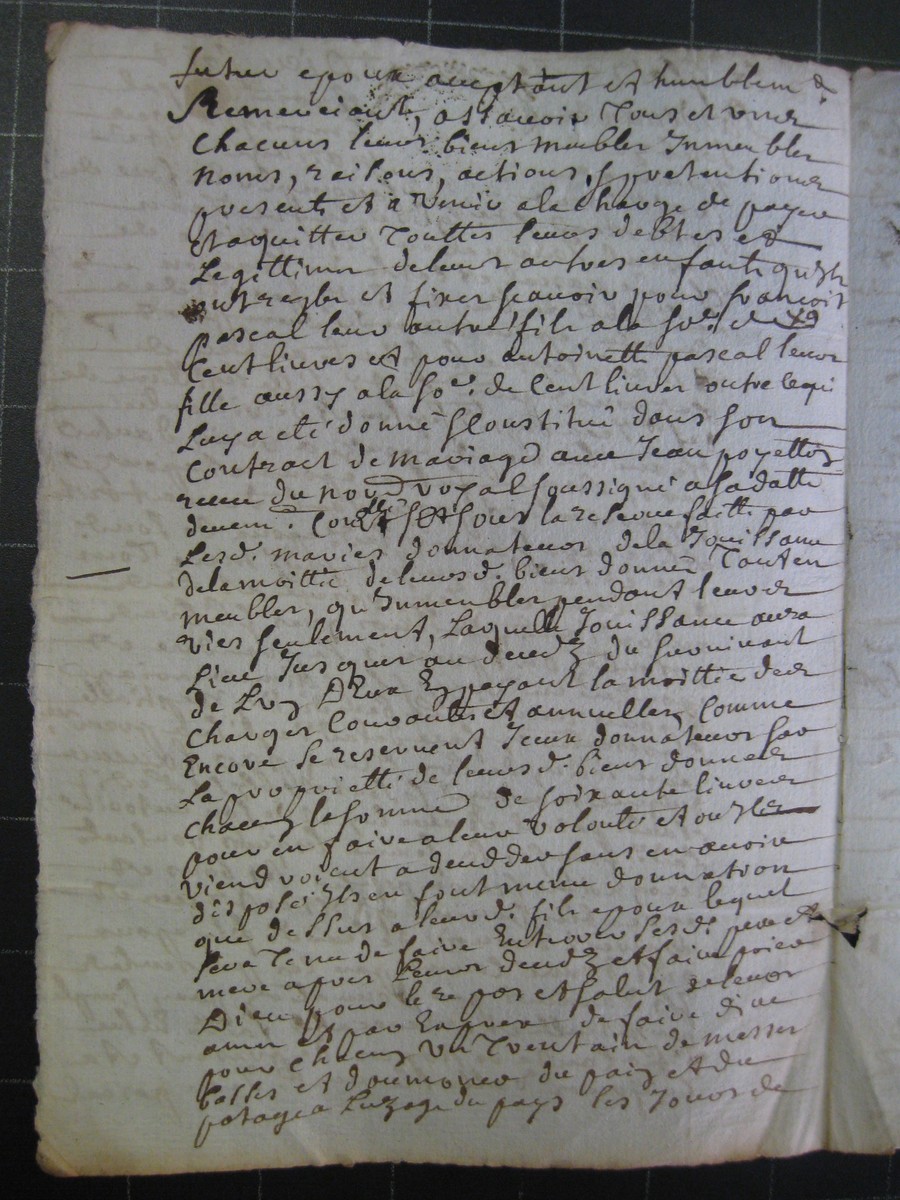 futur epoux acceptant et humblem.t
Remerciant, assavoir Tous et vngs
Chacuns leurs biens meubles Inmeubles
noms, raisons, actions, & pretentions
presents et a venir a la charge de payer
Et aquitter Touttes leurs debtes et
Legittimes de leurs autres enfants quils
ont regle et fixer scauoir pour francois
pascal leur autre fils a la so.e de
Cent liures et pour antoinette pascal leur
fille aussy a la so.e de Cent liures outre ce qui
Luy a eté donné & Constitué dans son
Contract de mariage auec Jean poyetton
receu du no.re royal soussigné a sa datte
deuem.t Con.llé et sous la reserue faitte par
Lesd. maries donnateurs de la Jouissance
de la moittié de leursd. biens donnés Tant en
meubles, qu'Inmeubles pendant leurs
vies seulement, Laquelle Jouissance aura
Lieu Jusques au decedz du suruiuant
de Lvn D'Eux En payant la moittié des
Charges Courantes et annuelles, Comme
Encore se reseruent Iceux donnateurs sur
La proprietté de leursd. biens donnés
Chacun la somme de soixante liures
pour en faire a leur volonté et ou Ils
viendroient a deceder sans en auoir
disposé Ils en font meme donnation
que dessus a leurd. fils epoux lequel
sera Tenu de faire Enterrer sesd. pere et
mere apres leurs decedz et faire prier
Dieu pour le repos et salut de leurs
ames et par Expres de faire dire
pour Chacun Vn Trentain de messes
basses et d'oumoner du pain et du
potage a Lusage du pays les Jours de